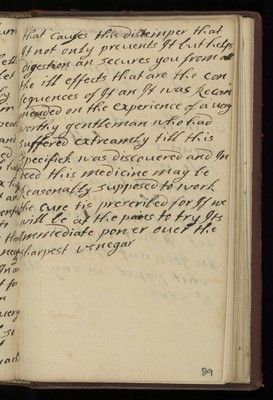 that causes this distemper that
It not only prevents It but helps
digestion an secures you from all
the ill effects that are the con
sequences of It an It was Recom
mended on the experience of a very
worthy gentleman who had
suffered extreamly till this
specifick was discovered and In
deed this medicine may be
reasonally supposed to work
the cure tis prescribed for If we
will be at the pains to try Its
Immediate power over the
sharpest venegar
89